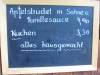 Apfelstrudel m Sahne u
Vanillesauce 4,90
Kuchen 3,30
alles hausgemacht